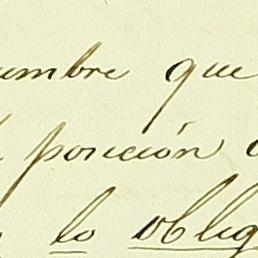 umbre que
posición
lo oblig